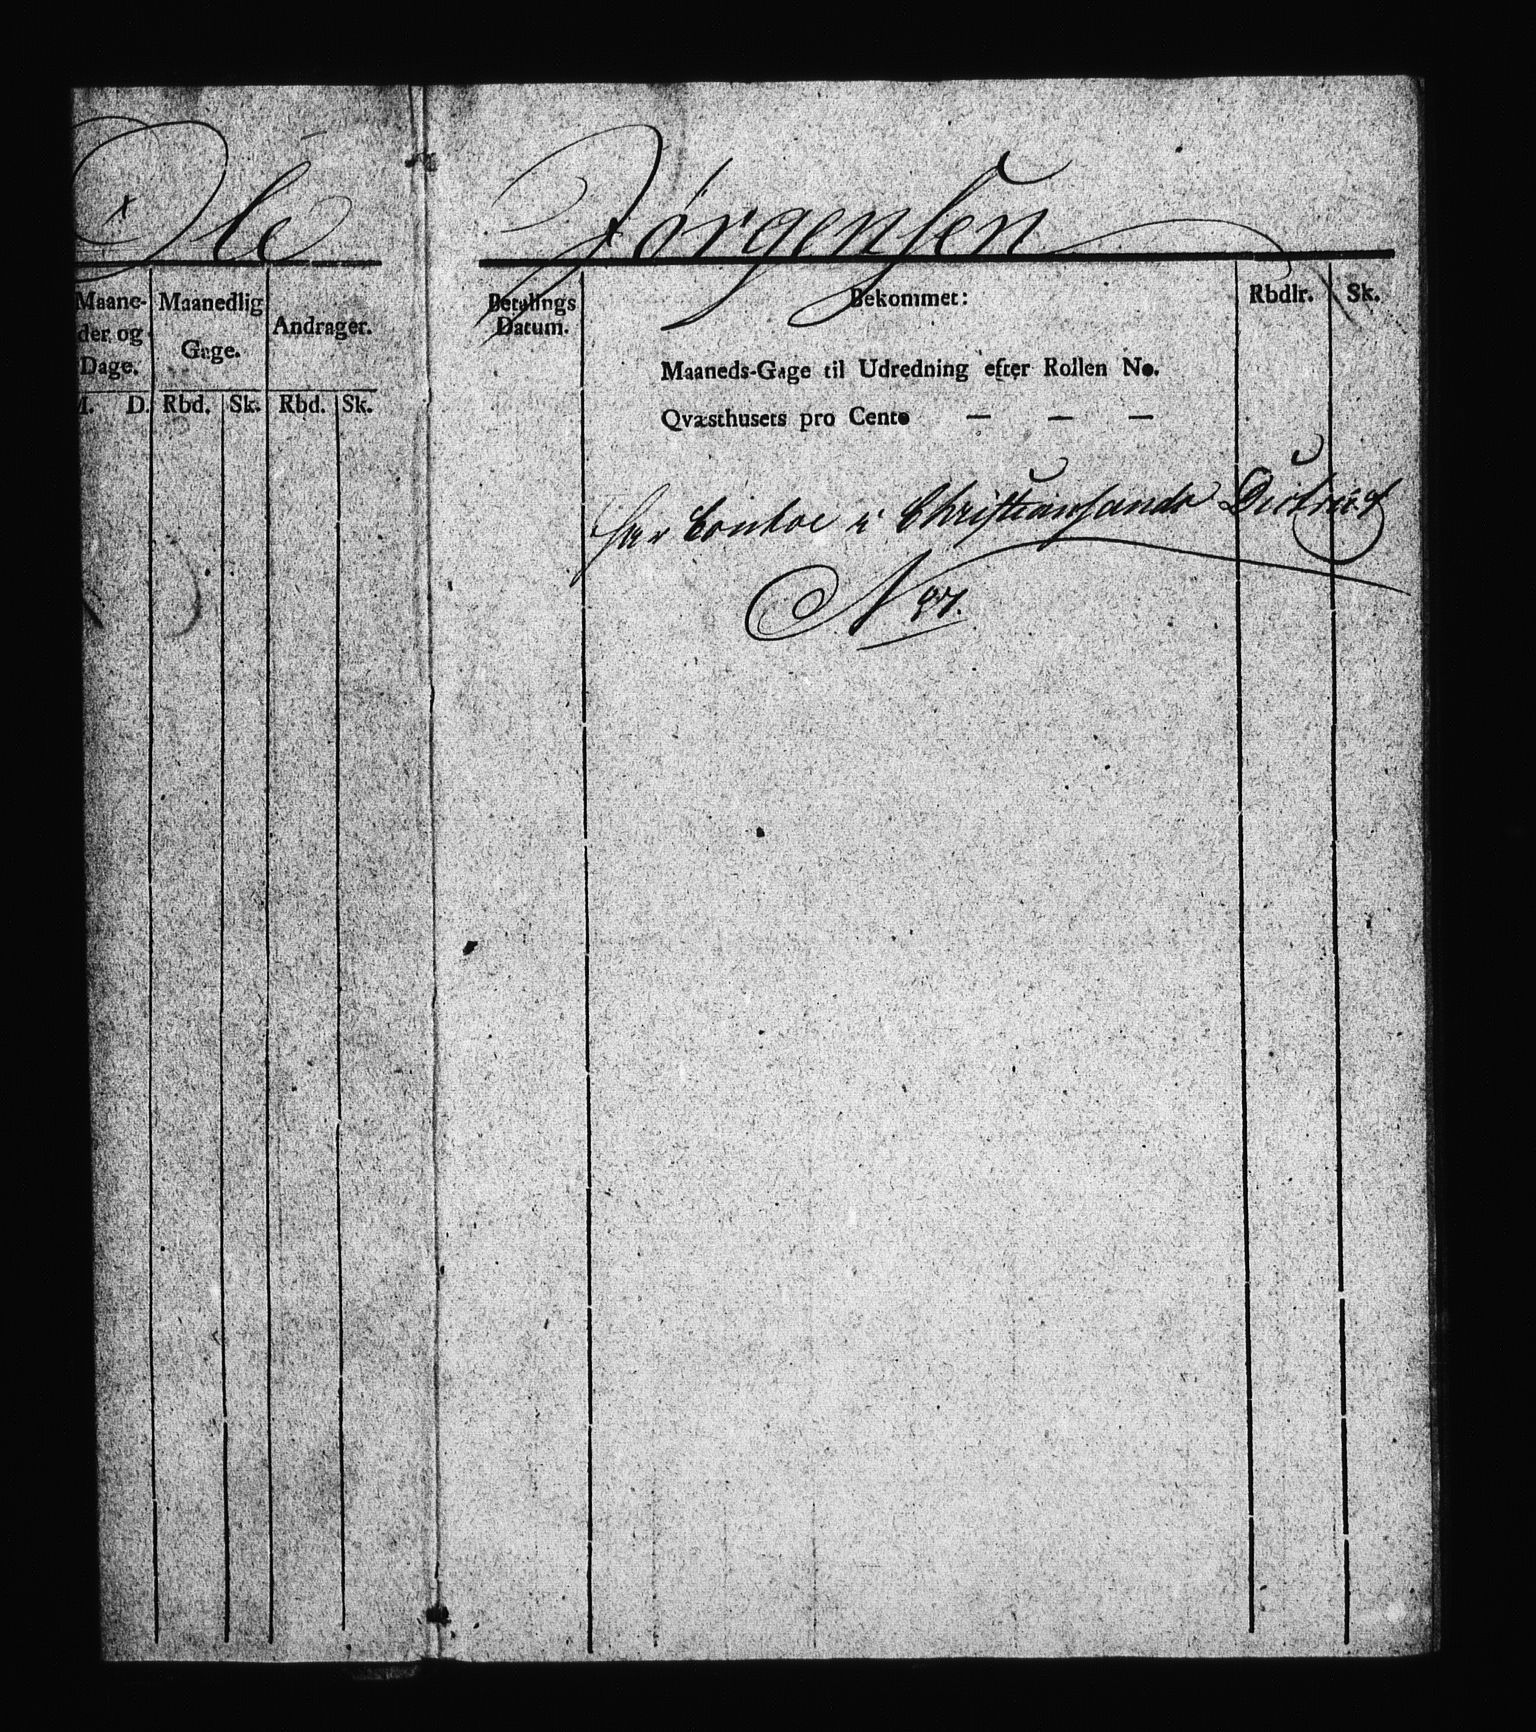 Ole Jørgensen
Maane-
der og
Dage.
Maanedlig
Gage.
Andrager.
M. D. Rbd. Sk. Rbd. Sk.
Betalings
Datum.
Bekommet:
Rbdlr. Sk.
Maaneds-Gage til Udredning efter Rollen No.
Qvæsthusets pro Cento — — —
har Contoe i Christiansands District
N 87.